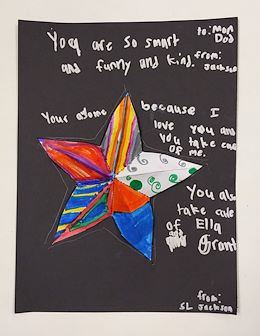 You are so smart
and funny and kind.
to: Mom
Dad
from:
Jackson
Your osome because I
love you and
you take care
of me.
You also
take cule
of Ella
Grant
from:
SL Jackson